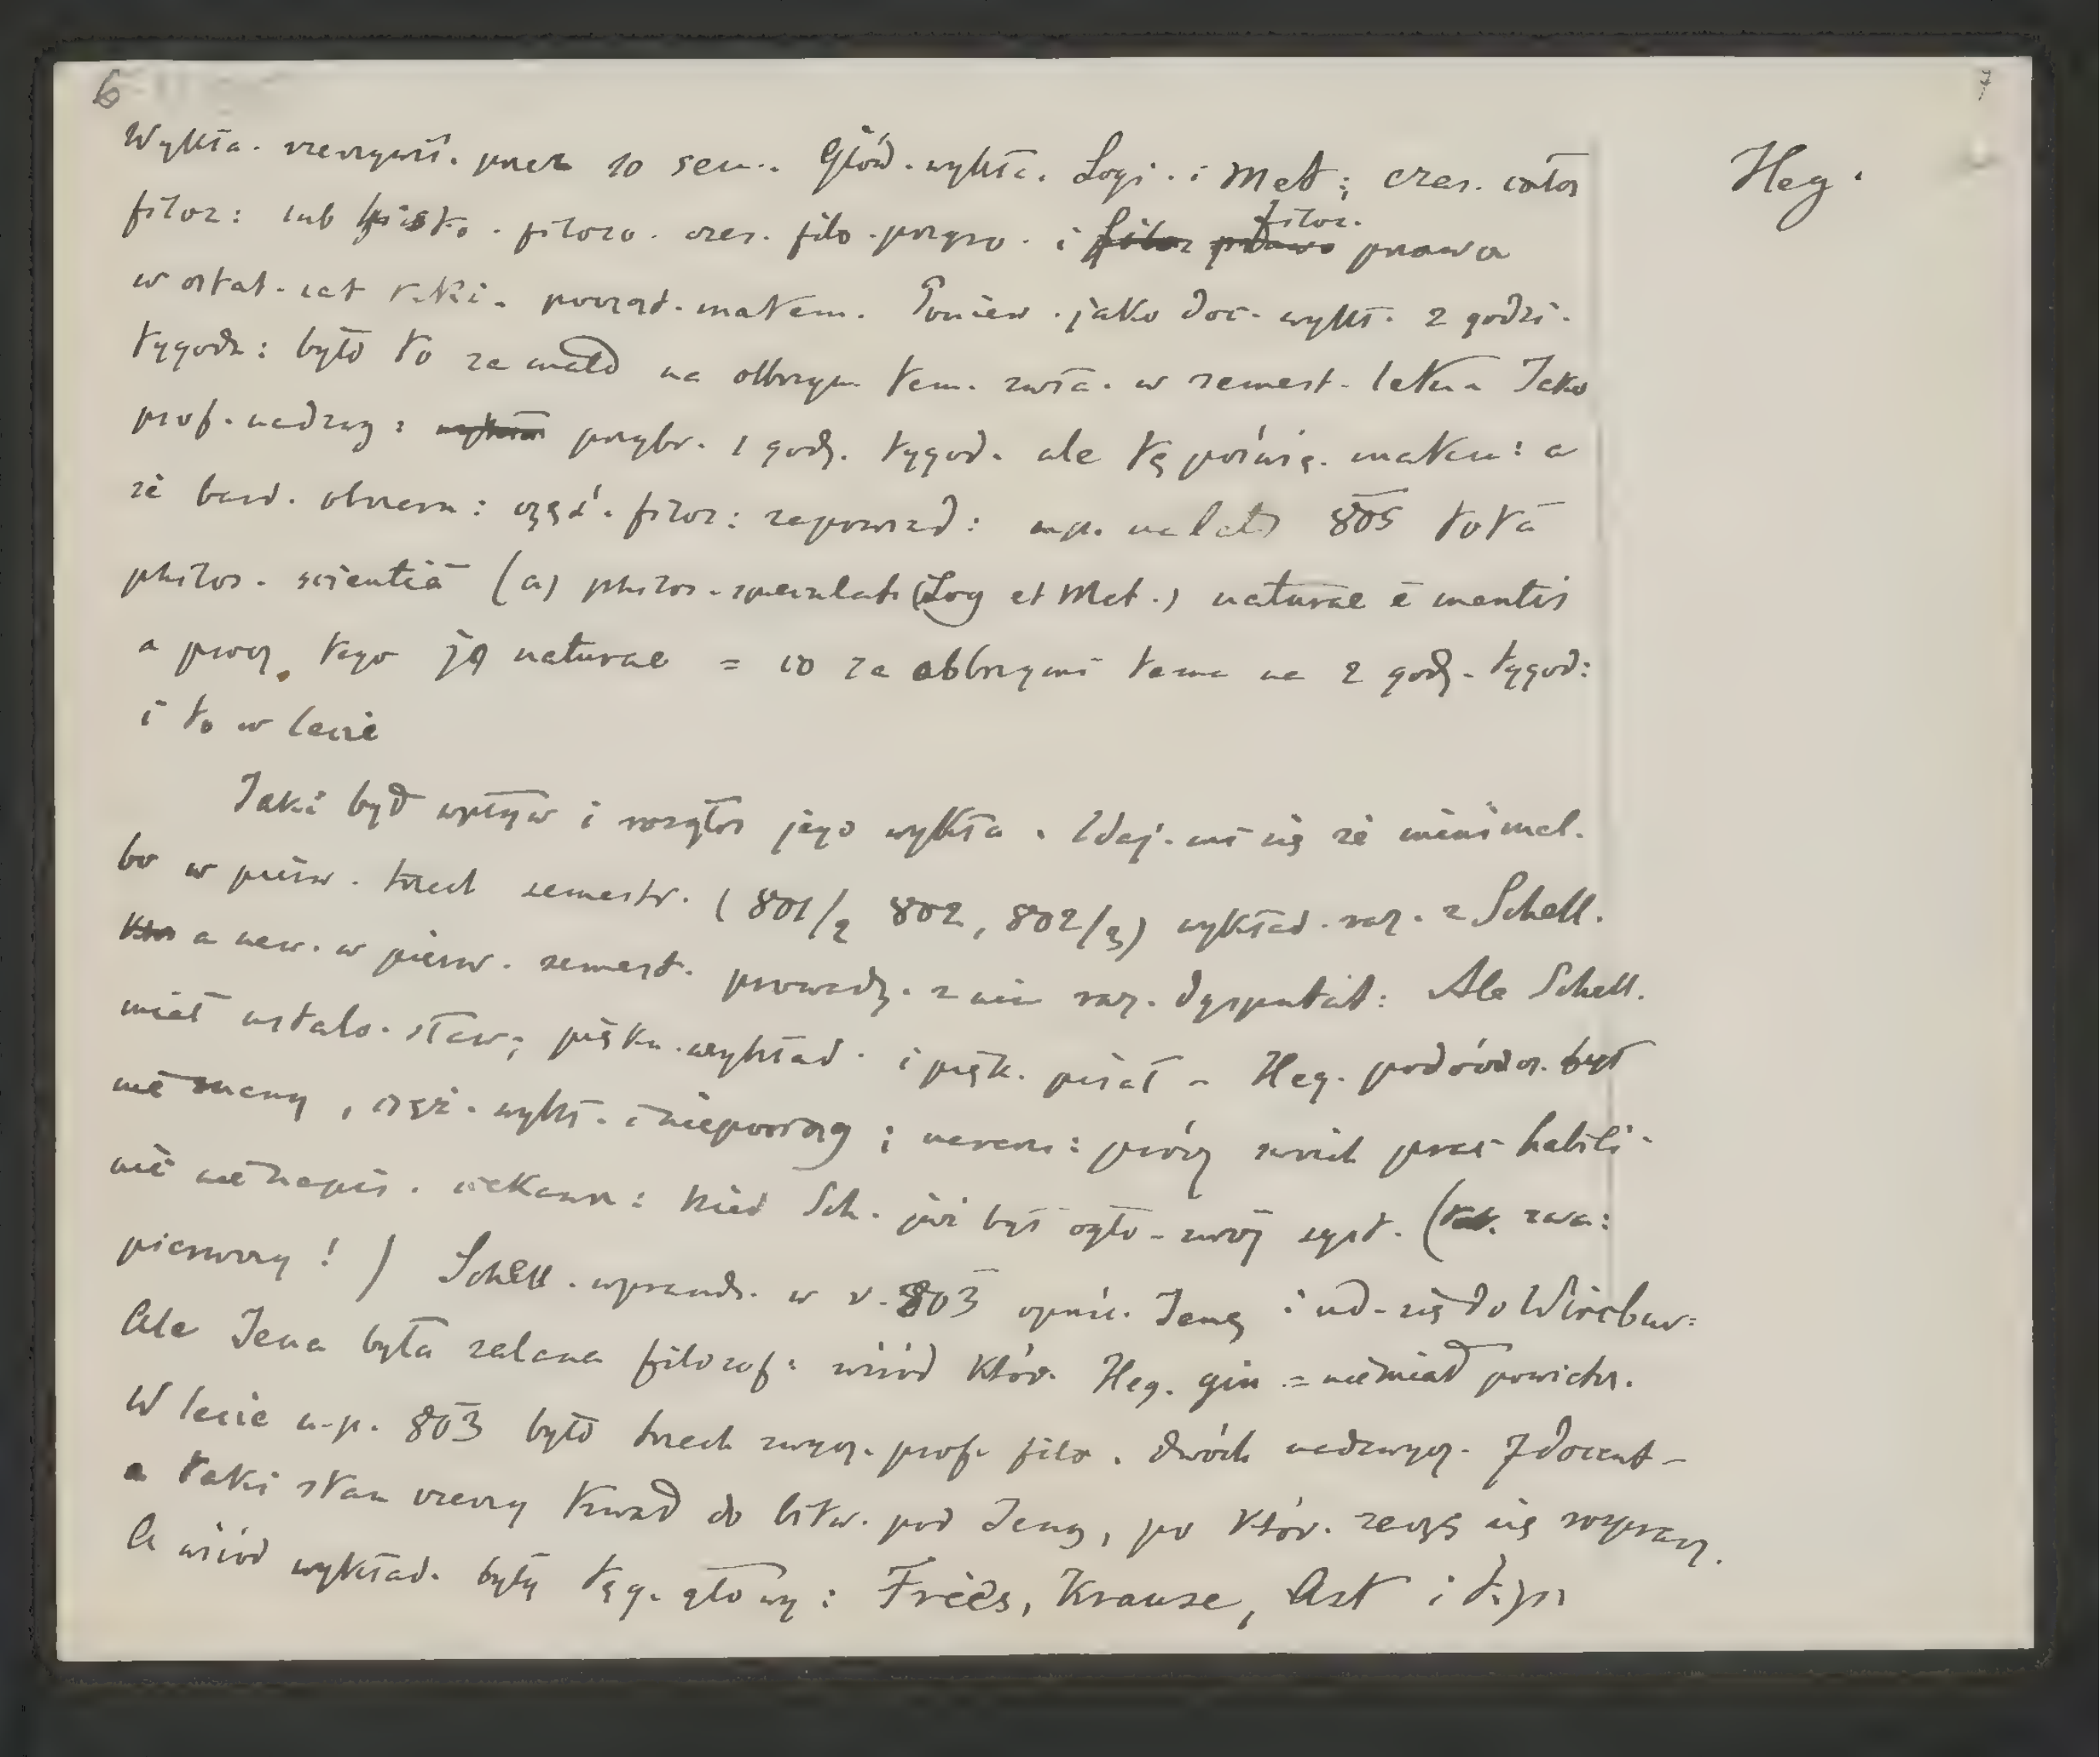 6
7
Heg.
Wykła. rzeczywiś. przez 10 sem. Głów. wykła. Logi. i Met; czas. całoś
filoz: lub histo. filozo. czas. filo. przyro. i filoz prawa filoz. prawa
w ostat. lat. także. początk. matem. Poniew. jako doc. wykł. 2 godzi.
tygodn: było to za mało na olbrzym. tem. zwła. w semest. letn. Jako
prof. nadzwy: przybr. 1 godz. tygod. ale tę poświę. matem: a
że bard. obszern: część. filoz: zapowiad: np. na lato 805 totā
philos. scientiā (a) philos. speculati (Log et Met.) naturae ē mentis
a prócz tego jq naturae = co za olbrzymi tema na 2 godz. tygod:
i to w lecie
Jaki był wpływ i rozgłos jego wykła. Zdaj. mi się że minimal.
bo w pierw. trzech semestr. (801/2 802, 802/3) wykład. raz. z Schell.
a naw. w pierw. semest. prowadz. z nim raz. dysputat: Ale Schell.
miał ustalo. sław; piękn. wykład. i pięk. pisał – Heg. podówcz. był
nie znany, cięż. wykł. i nieporad; nareszc: prócz swoich prac habili.
nic nie napis. ciekawe: kied Sch. już był ogło. swój syst. (tak. zwa:
pierwszy!) Schell. wprawdz. w r. 803 opuśc. Jenę i ud. się do Würcbur:
Ale Jena była zalana filozof: wśród któr. Heg. gin = nie miał powietrz.
W lecie n.p. 803 było trzech zwycz. prof. filo. dwóch nadzwycz. 7 docent –
a taki stan rzeczy trwał do bitw. pod Jeną, po któr. zaczę się rozprasz.
A wśród wykład. były tęg. głowy: Fries, Krause, Ast i